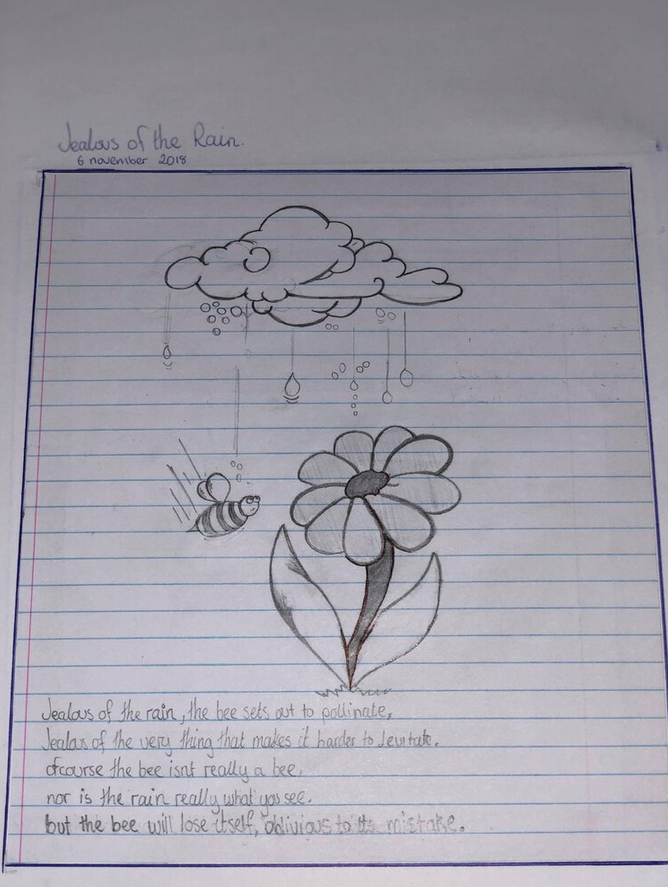 Jealous of the Rain.
6 november 2018
Jealous of the rain, the bee sets out to pollinate,
Jealous of the very thing that makes it harder to levitate.
ofcourse the bee isnt really a bee,
nor is the rain really what you see.
but the bee will lose itself, oblivious to its mistake.